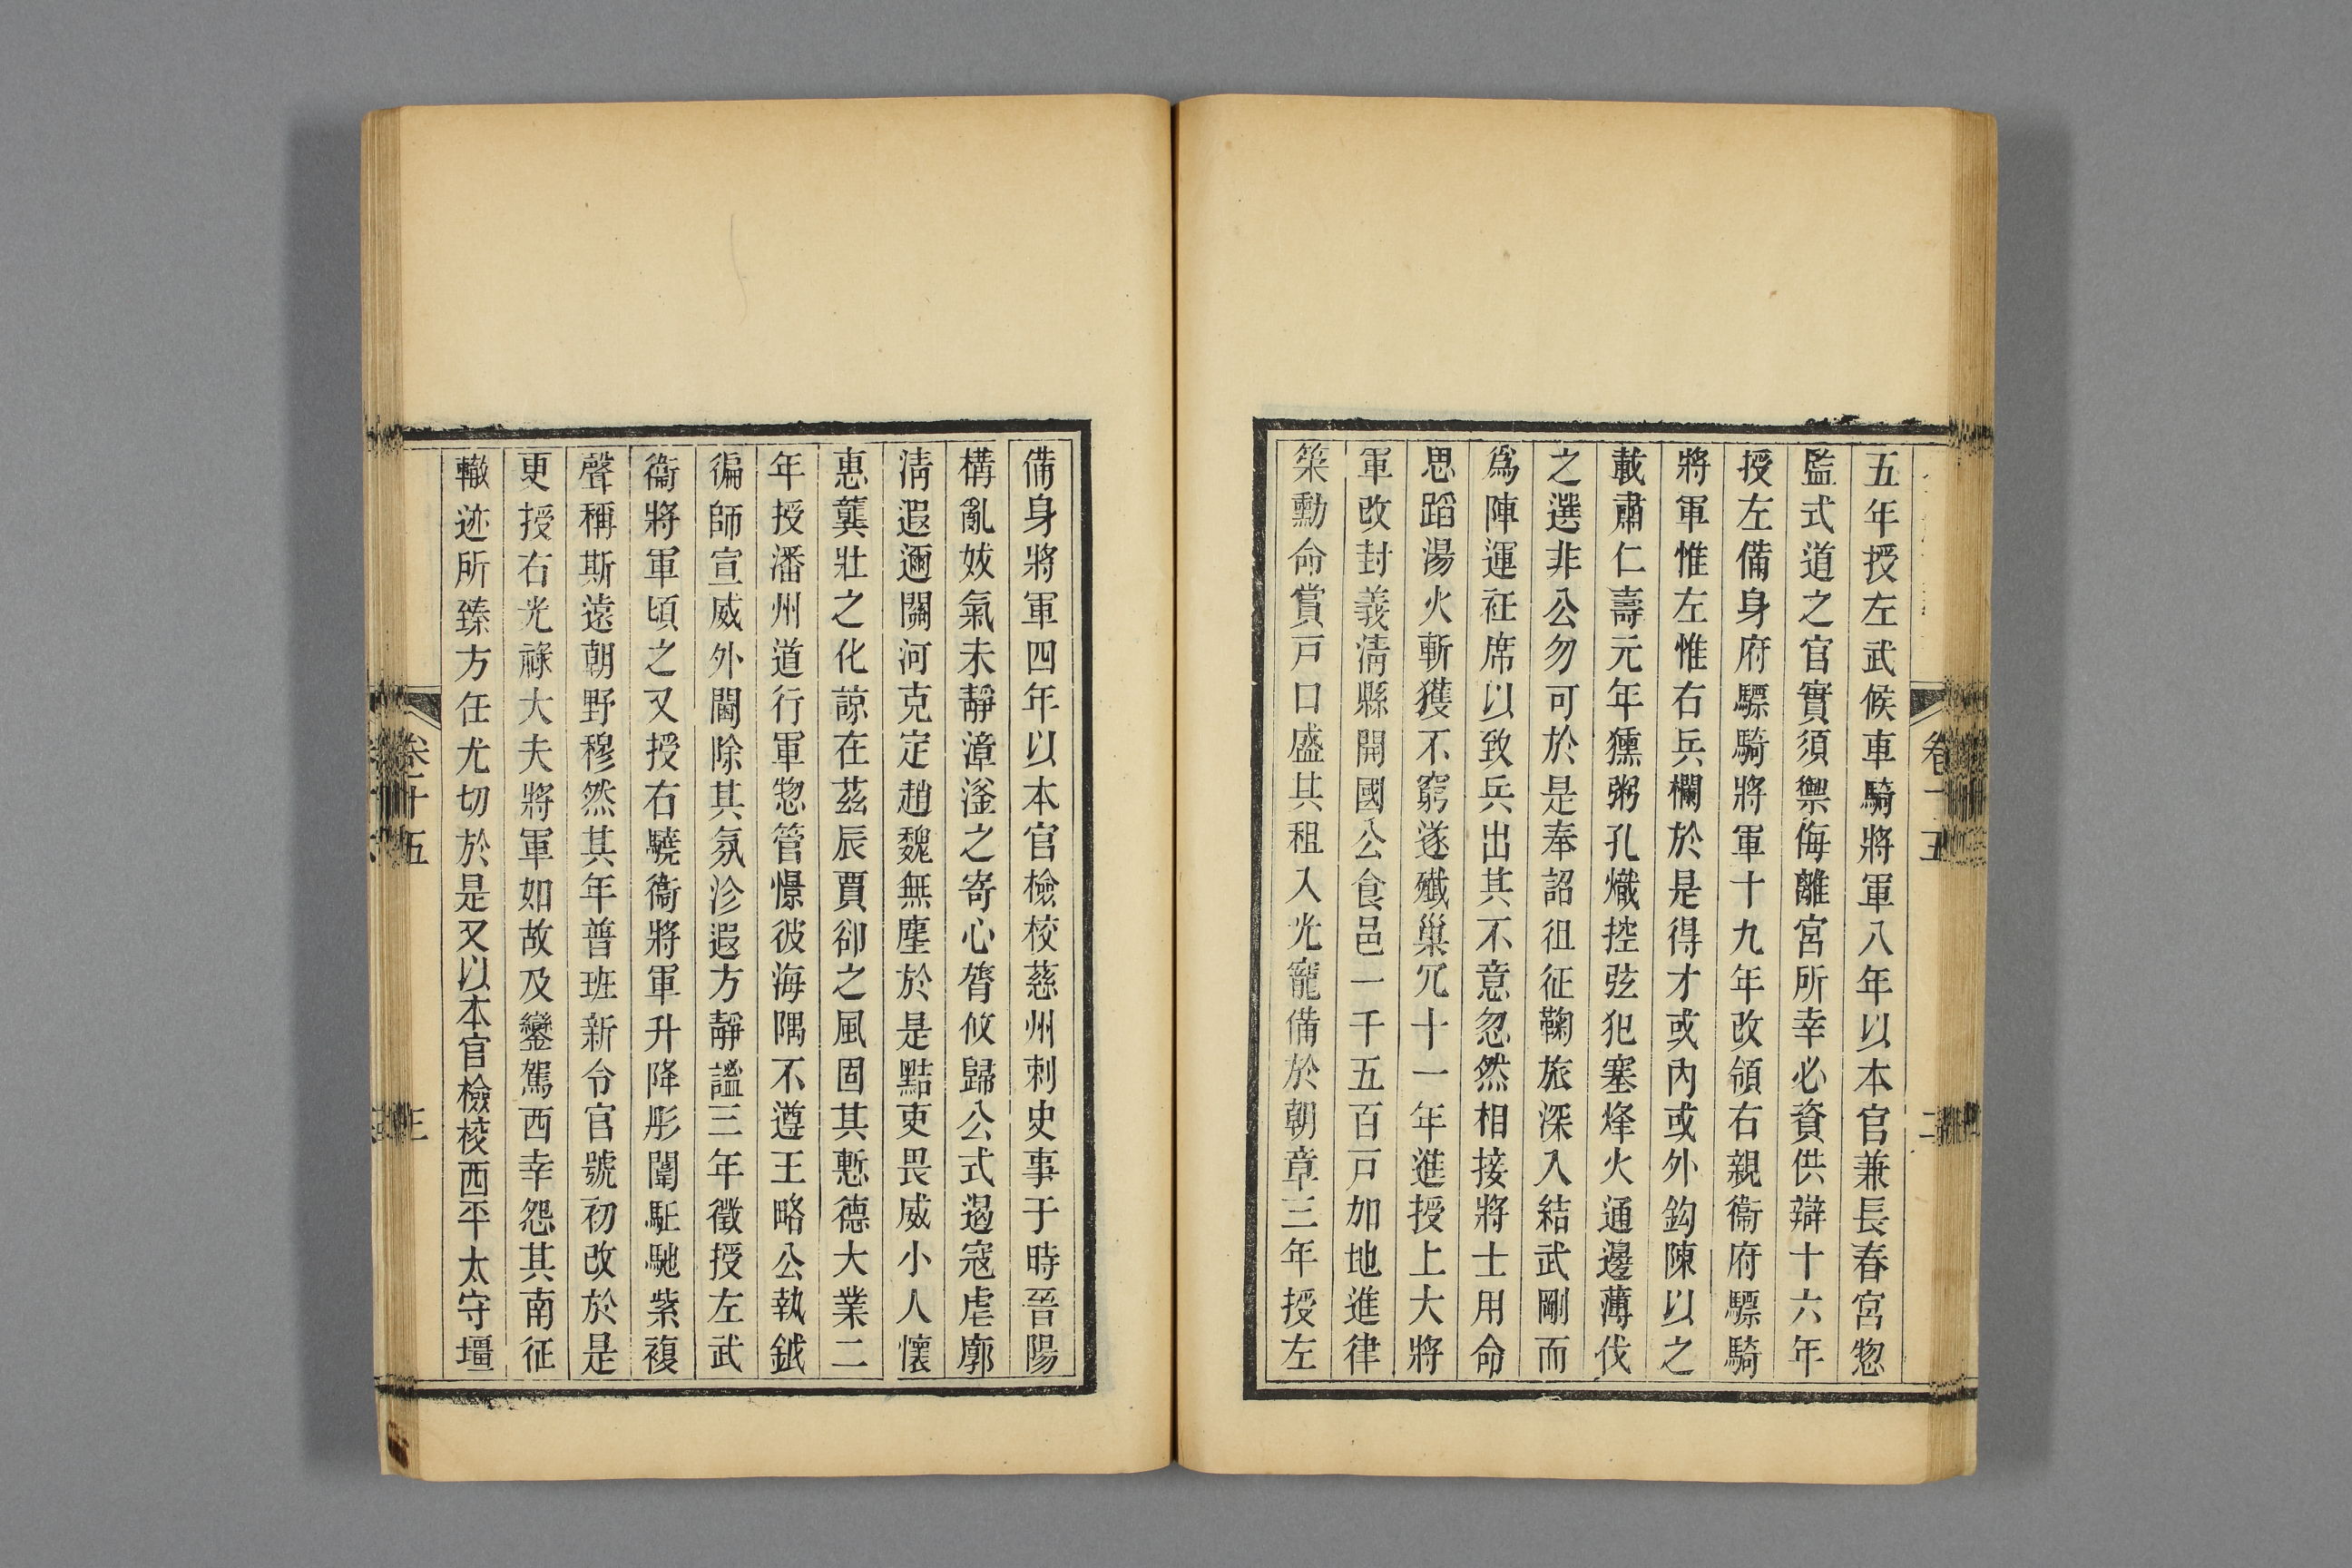 五年授左武候車騎將軍八年以本官兼長春宮惣
監式道之官實須禦侮離宮所幸必資供辯十六年
授左備身府驃騎將軍十九年改領右親衞府驃騎
將軍惟左惟右兵欄於是得才或內或外鈎陳以之
載肅仁壽元年獯粥孔熾控弦犯塞烽火通邊薄伐
之選非公勿可於是奉詔徂征鞠旅深入結武剛而
爲陣運祍席以致兵出其不意忽然相接將士用命
思蹈湯火斬獲不窮遂殲巢冗十一年進授上大將
軍改封義淸縣開國公食邑一千五百戸加地進律
築勳命賞戸口盛其租入光寵備於朝章三年授左
備身將軍四年以本官檢校慈州刺史事于時晉陽
構亂妭氣未靜漳滏之寄心膂攸歸公式遏寇虐廓
淸遐邇關河克定趙魏無塵於是黠吏畏威小人懷
惠龔壯之化諒在茲辰賈卻之風固其慙德大業二
年授潘州道行軍惣管憬彼海隅不遵王略公執鉞
徧師宣威外閫除其氛沴遐方靜謐三年徵授左武
衞將軍頃之又授右驍衞將軍升降彤闈駈馳紫複
聲稱斯遠朝野穆然其年普班新令官號初改於是
更授右光祿大夫將軍如故及鑾駕西幸怨其南征
轍迹所臻方任尤切於是又以本官檢校西平太守壃
卷十五
三